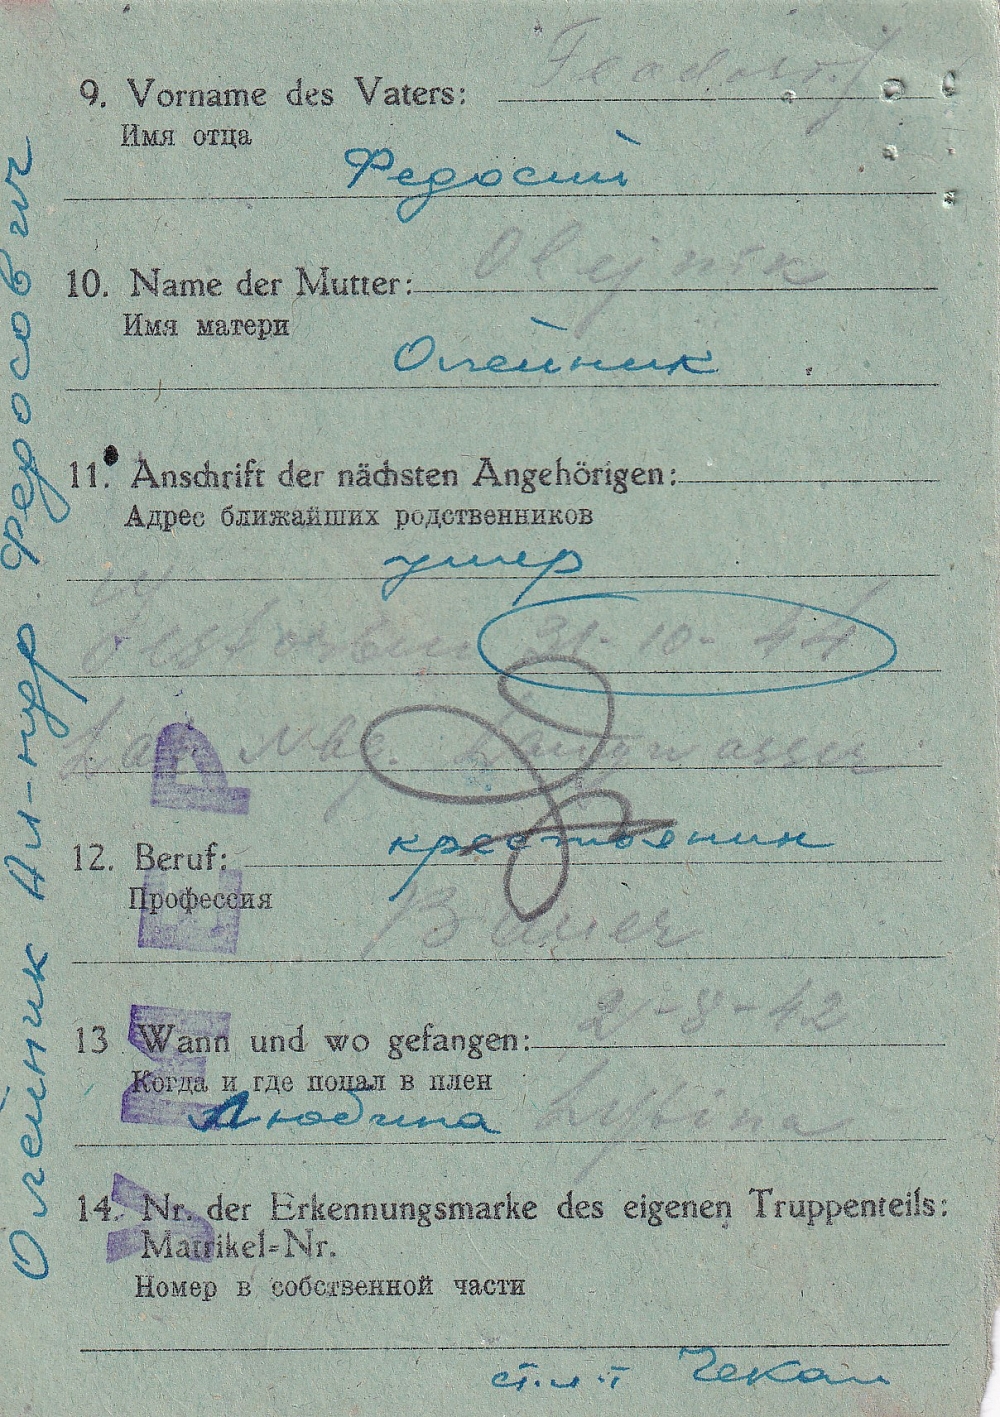 9. Vorname des Vaters:
Имя отца
Федосий
10. Name der Mutter: Olejnik
Имя матери
Олейник
11. Anschrift der nächsten Angehörigen:
Адрес ближайших родственников
умер
gestorben 31-10-44
Nbg. Langwasser
12. Beruf: крестьянин
Профессия
Bauer
13 Wann und wo gefangen: 21-8-42
Когда и где попал в плен
Любина Lybina
14. Nr. der Erkennungsmarke des eigenen Truppenteils:
Matrikel-Nr.
Номер в собственной части
ст. л-т Чекан
Олейник Ал-ндр Федосович
УМЕР